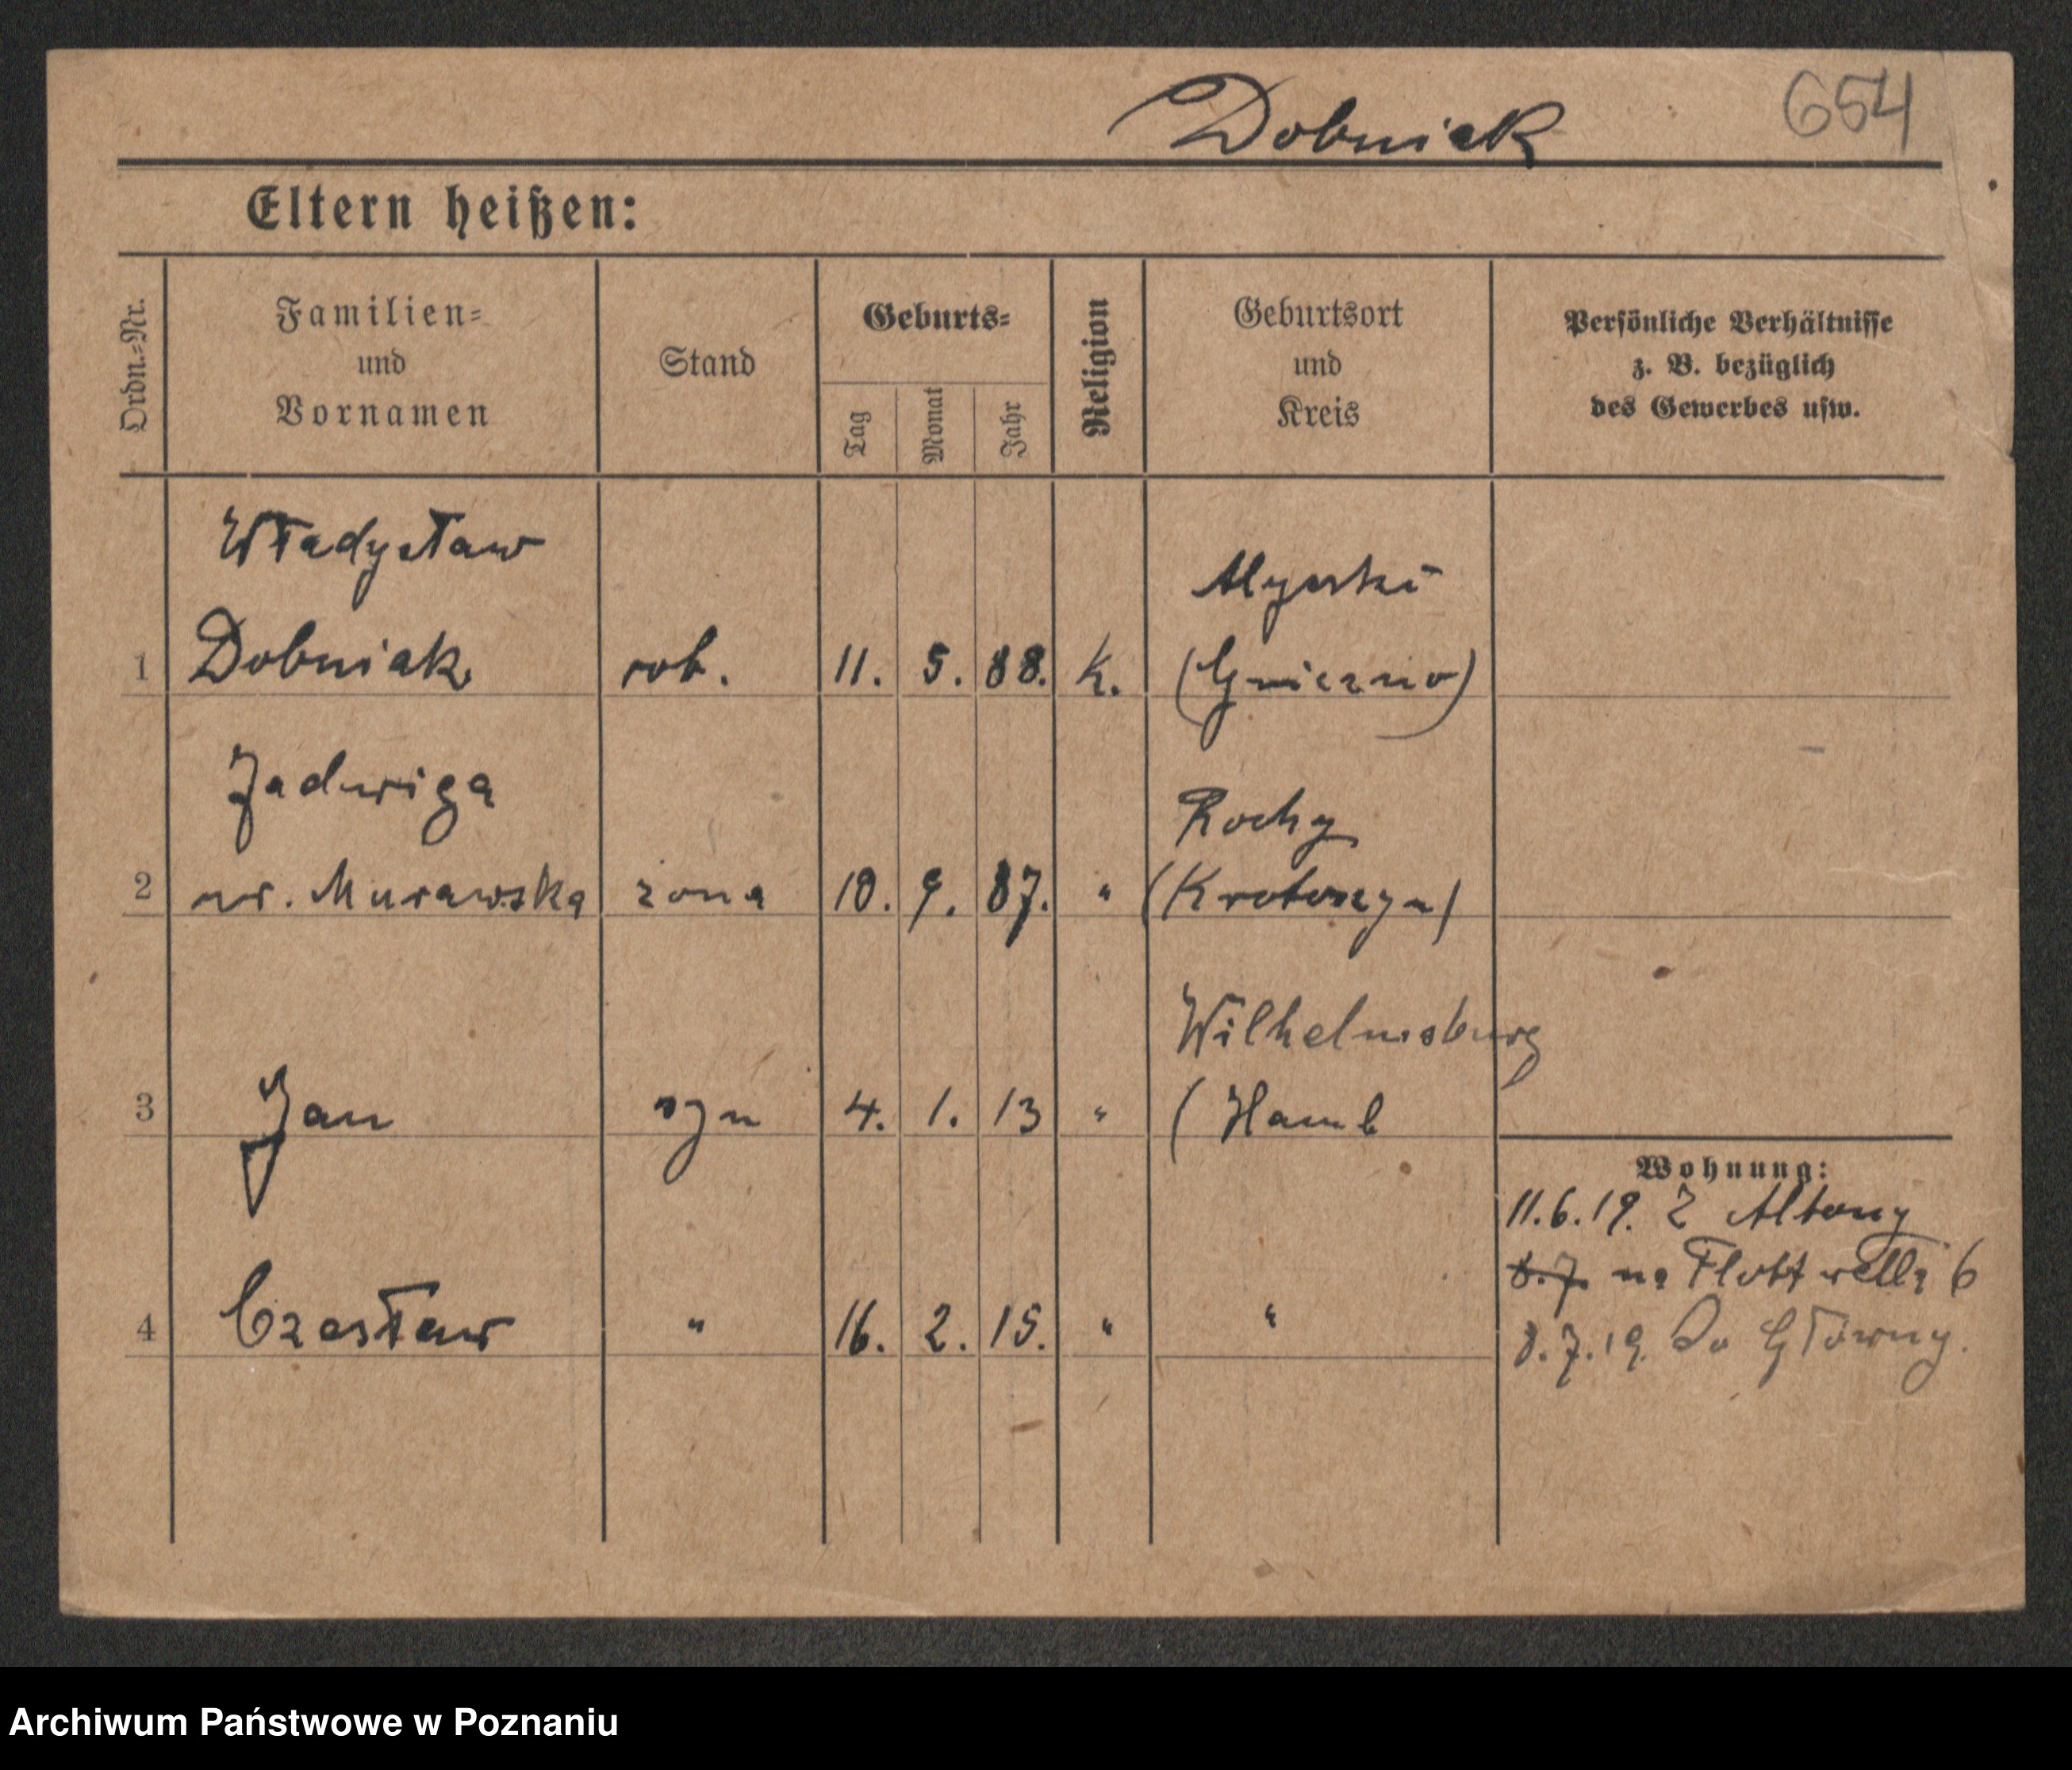 Dobniak 654
Eltern heißen:
Ordn.-Nr.
Familien-
und
Vornamen
Stand
Geburts-
Tag
Monat
Jahr
Religion
Geburtsort
und
Kreis
Persönliche Verhältnisse
z. B. bezüglich
des Gewerbes usw.
Władysław
1 Dobniak rob. 11. 5. 88. K. (Gniezno)
Jadwiga Rochy
2 ur. Murawska żona 10. 9. 87. " (Krotoszyn)
Wilhelmsburg
3 Jan syn 4. 1. 13 " (Hamb
Wohnung:
11.6.19. Z Altony
8.7. na Flottwella 6
4 Czesław " 16. 2. 15. " "
8.7.19. Do Główny.
Archiwum Państwowe w Poznaniu